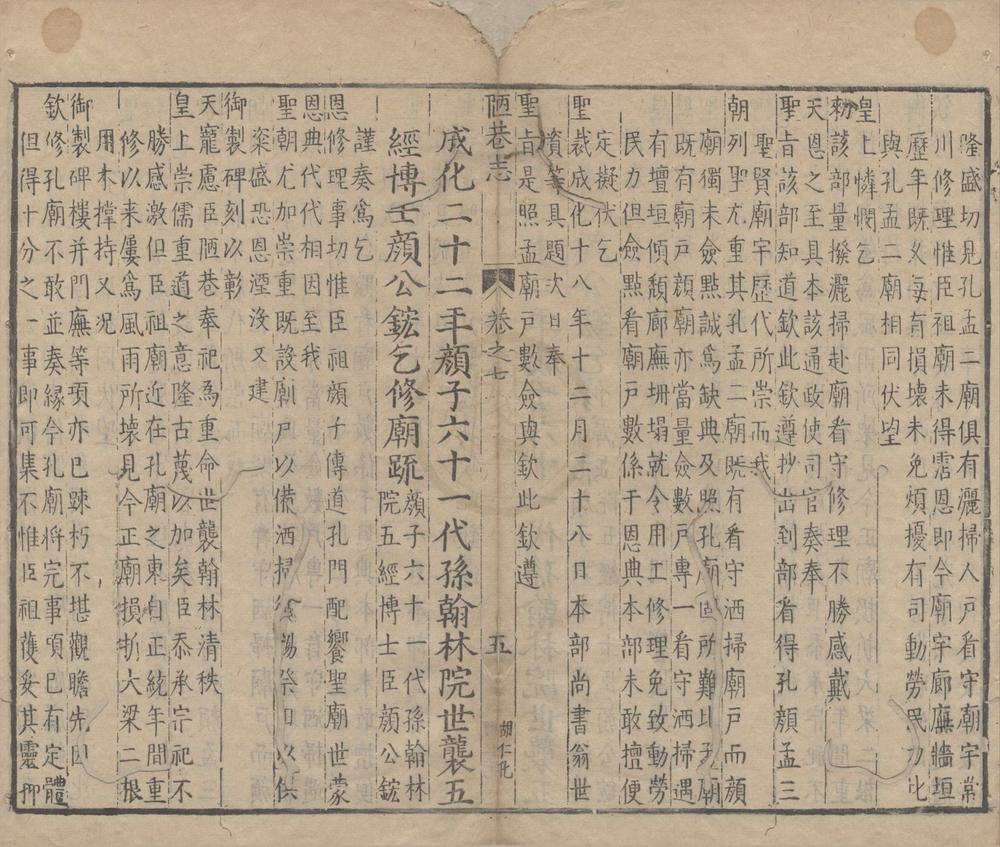 隆盛切見孔孟二廟俱有灑掃人戶看守廟宇常
川修理惟臣祖廟未得霑恩即今廟宇廊廡牆垣
歷年既乆每有損壞未免煩擾有司動勞民力比
與孔孟二廟相同伏望
皇上憐憫乞
勑該部量撥灑掃赴廟看守修理不勝感戴
天恩之至具本該通政使司官奏奉
聖旨該部知道欽此欽遵抄出到部看得孔顔孟三
聖賢廟宇歷代所崇而我
朝列聖尤重其孔孟二廟既有看守洒掃廟戶而顔
廟獨未僉點誠爲缺典及照孔廟 所難比 廟
既有廟戶顔廟亦當量僉數戶專一看守洒掃遇
有壇垣傾頽廊廡坍塌就令用工修理免致動勞
民力但僉點看廟戶數係于恩典本部未敢擅便
定擬伏乞
聖裁成化十八年十二月二十八日本部尚書翁世
資等具題次日奉
聖旨是照孟廟戶數僉與欽此欽遵
陋巷志 卷之七 五 胡仁化
成化二十二年顔子六十一代孫翰林院世襲五
經博士顔公鋐乞修廟疏 顔子六十一代孫翰林
院五經博士臣顔公鋐
謹奏爲乞
恩修理事切惟臣祖顔子傳道孔門配饗聖廟世蒙
恩典代代相因至我
聖朝尤加崇重既設廟戶以備洒掃 祭田以供
粢盛恐恩湮沒又建
御製碑刻以彰
天寵慮臣陋巷奉祀爲重命世襲翰林清秩
皇上崇儒重道之意隆古蔑以加矣臣忝承宗祀不
勝感激但臣祖廟近在孔廟之東自正統年間重
修以来屢爲風雨所壞見今正廟損折大梁二根
用木撑持又况
御製碑樓并門廡等項亦已踈朽不堪觀瞻先因
欽修孔廟不敢並奏緣今孔廟將完事項已有定體
但得十分之一事即可集不惟臣祖獲妥其靈抑